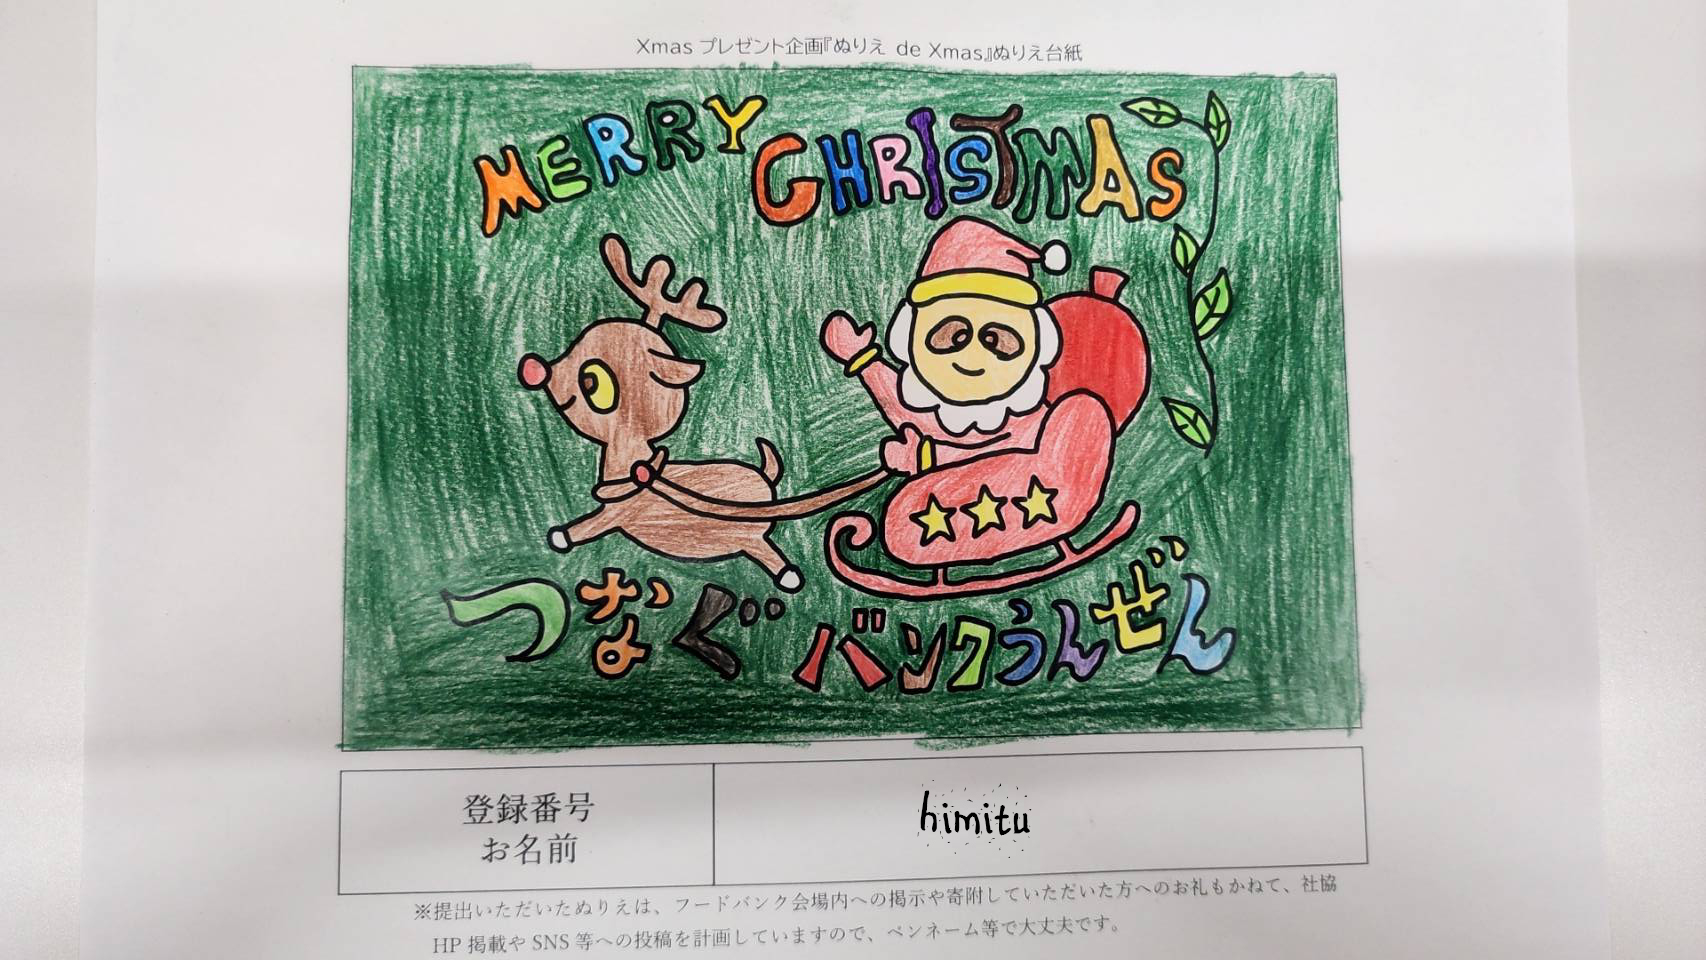 Xmas プレゼント企画『ぬりえ de Xmas』ぬりえ台紙
MERRY CHRISTMAS
つなぐ バンクうんぜん
登録番号
お名前
himitu
※提出いただいたぬりえは、フードバンク会場内への掲示や寄附していただいた方へのお礼もかねて、社協
HP 掲載や SNS 等への投稿を計画していますので、ペンネーム等で大丈夫です。